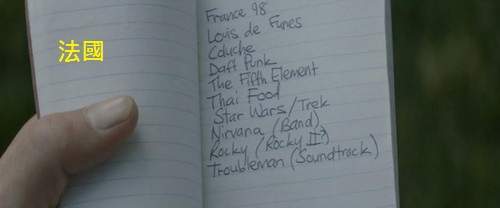 法國
France 98
Louis de Funes
Coluche
Daft Punk
The Fifth Element
Thai Food
Star Wars/Trek
Nirvana (Band)
Rocky (Rocky II?)
Troubleman (Soundtrack)